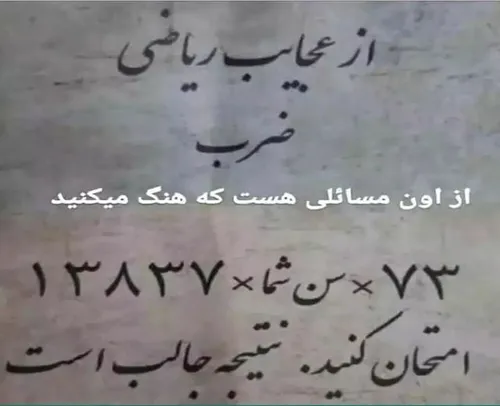 از عجایب ریاضی
ضرب
از اون مسائلی هست که هنگ میکنید
۷۳ × سن شما × ۱۳۸۳۷
امتحان کنید. نتیجه جالب است